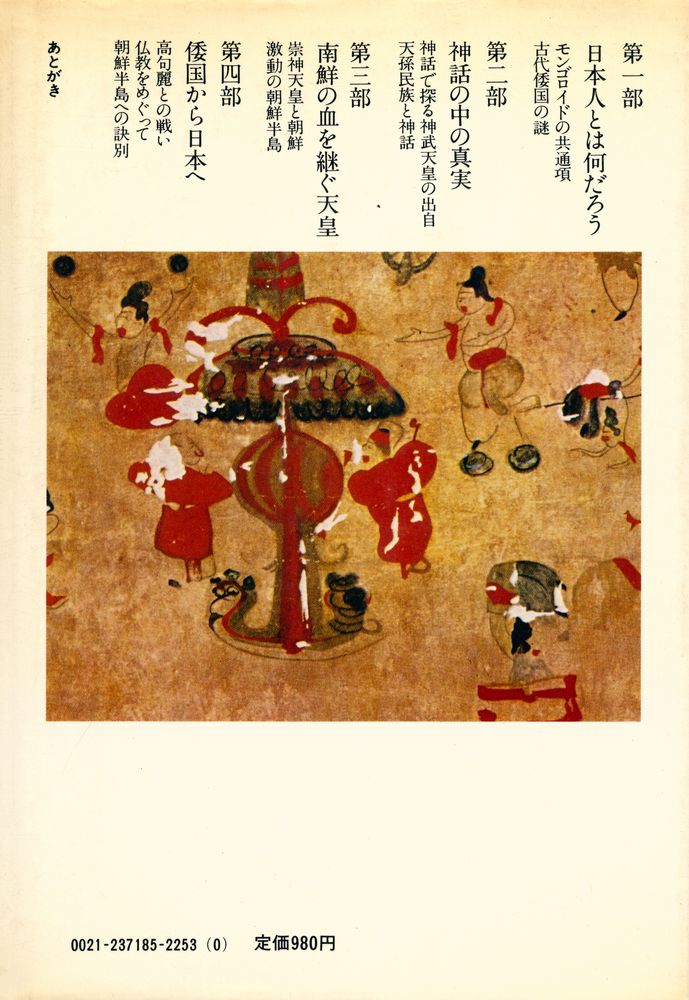 第一部
日本人とは何だろう
モンゴロイドの共通項
古代倭国の謎
第二部
神話の中の真実
神話で探る神武天皇の出自
天孫民族と神話
第三部
南鮮の血を継ぐ天皇
崇神天皇と朝鮮
激動の朝鮮半島
第四部
倭国から日本へ
高句麗との戦い
仏教をめぐって
朝鮮半島への訣別
あとがき
0021-237185-2253(0) 定価980円